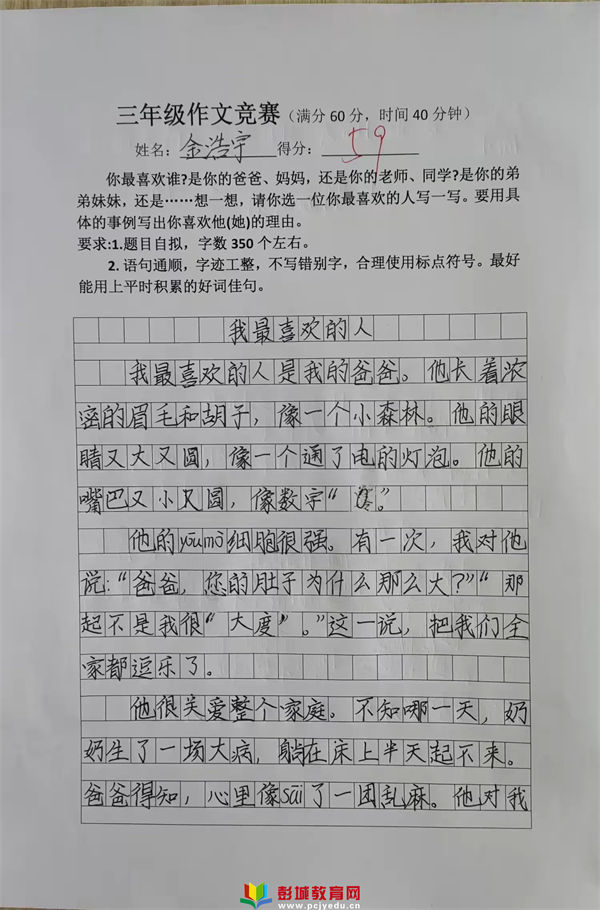 三年级作文竞赛（满分60分，时间40分钟）
姓名：金浩宇 得分：59
你最喜欢谁?是你的爸爸、妈妈，还是你的老师、同学?是你的弟
弟妹妹，还是……想一想，请你选一位你最喜欢的人写一写。要用具
体的事例写出你喜欢他(她)的理由。
要求:1.题目自拟，字数350个左右。
2. 语句通顺，字迹工整，不写错别字，合理使用标点符号。最好
能用上平时积累的好词佳句。
我最喜欢的人
我最喜欢的人是我的爸爸。他长着浓
密的眉毛和胡子，像一个小森林。他的眼
睛又大又圆，像一个通了电的灯泡。他的
嘴巴又小又圆，像数字“ ”。
他的yōumò细胞很强。有一次，我对他
说：“爸爸，您的肚子为什么那么大？”“那
起不是我很“大度”。”这一说，把我们全
家都逗乐了。
他很关爱整个家庭。不知哪一天，奶
奶生了一场大病，躺在床上半天起不来。
爸爸得知，心里像sāi了一团乱麻。他对我
彭城教育网
www.pcjyedu.cn